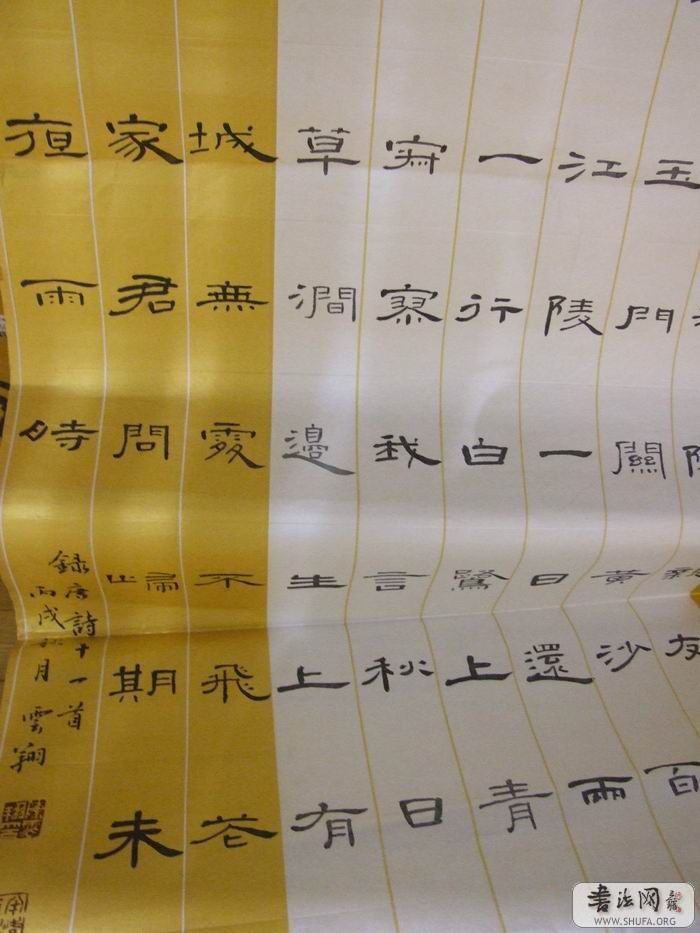 玉門關黃沙百
江陵一日還兩
一行白鷺上青
寂寥我言秋日
草澗邊生上有
城無處不飛花
家君問歸期未
夜雨時
錄唐詩十一首
丙戌秋月 雲翔
书法网
WWW.SHUFA.ORG